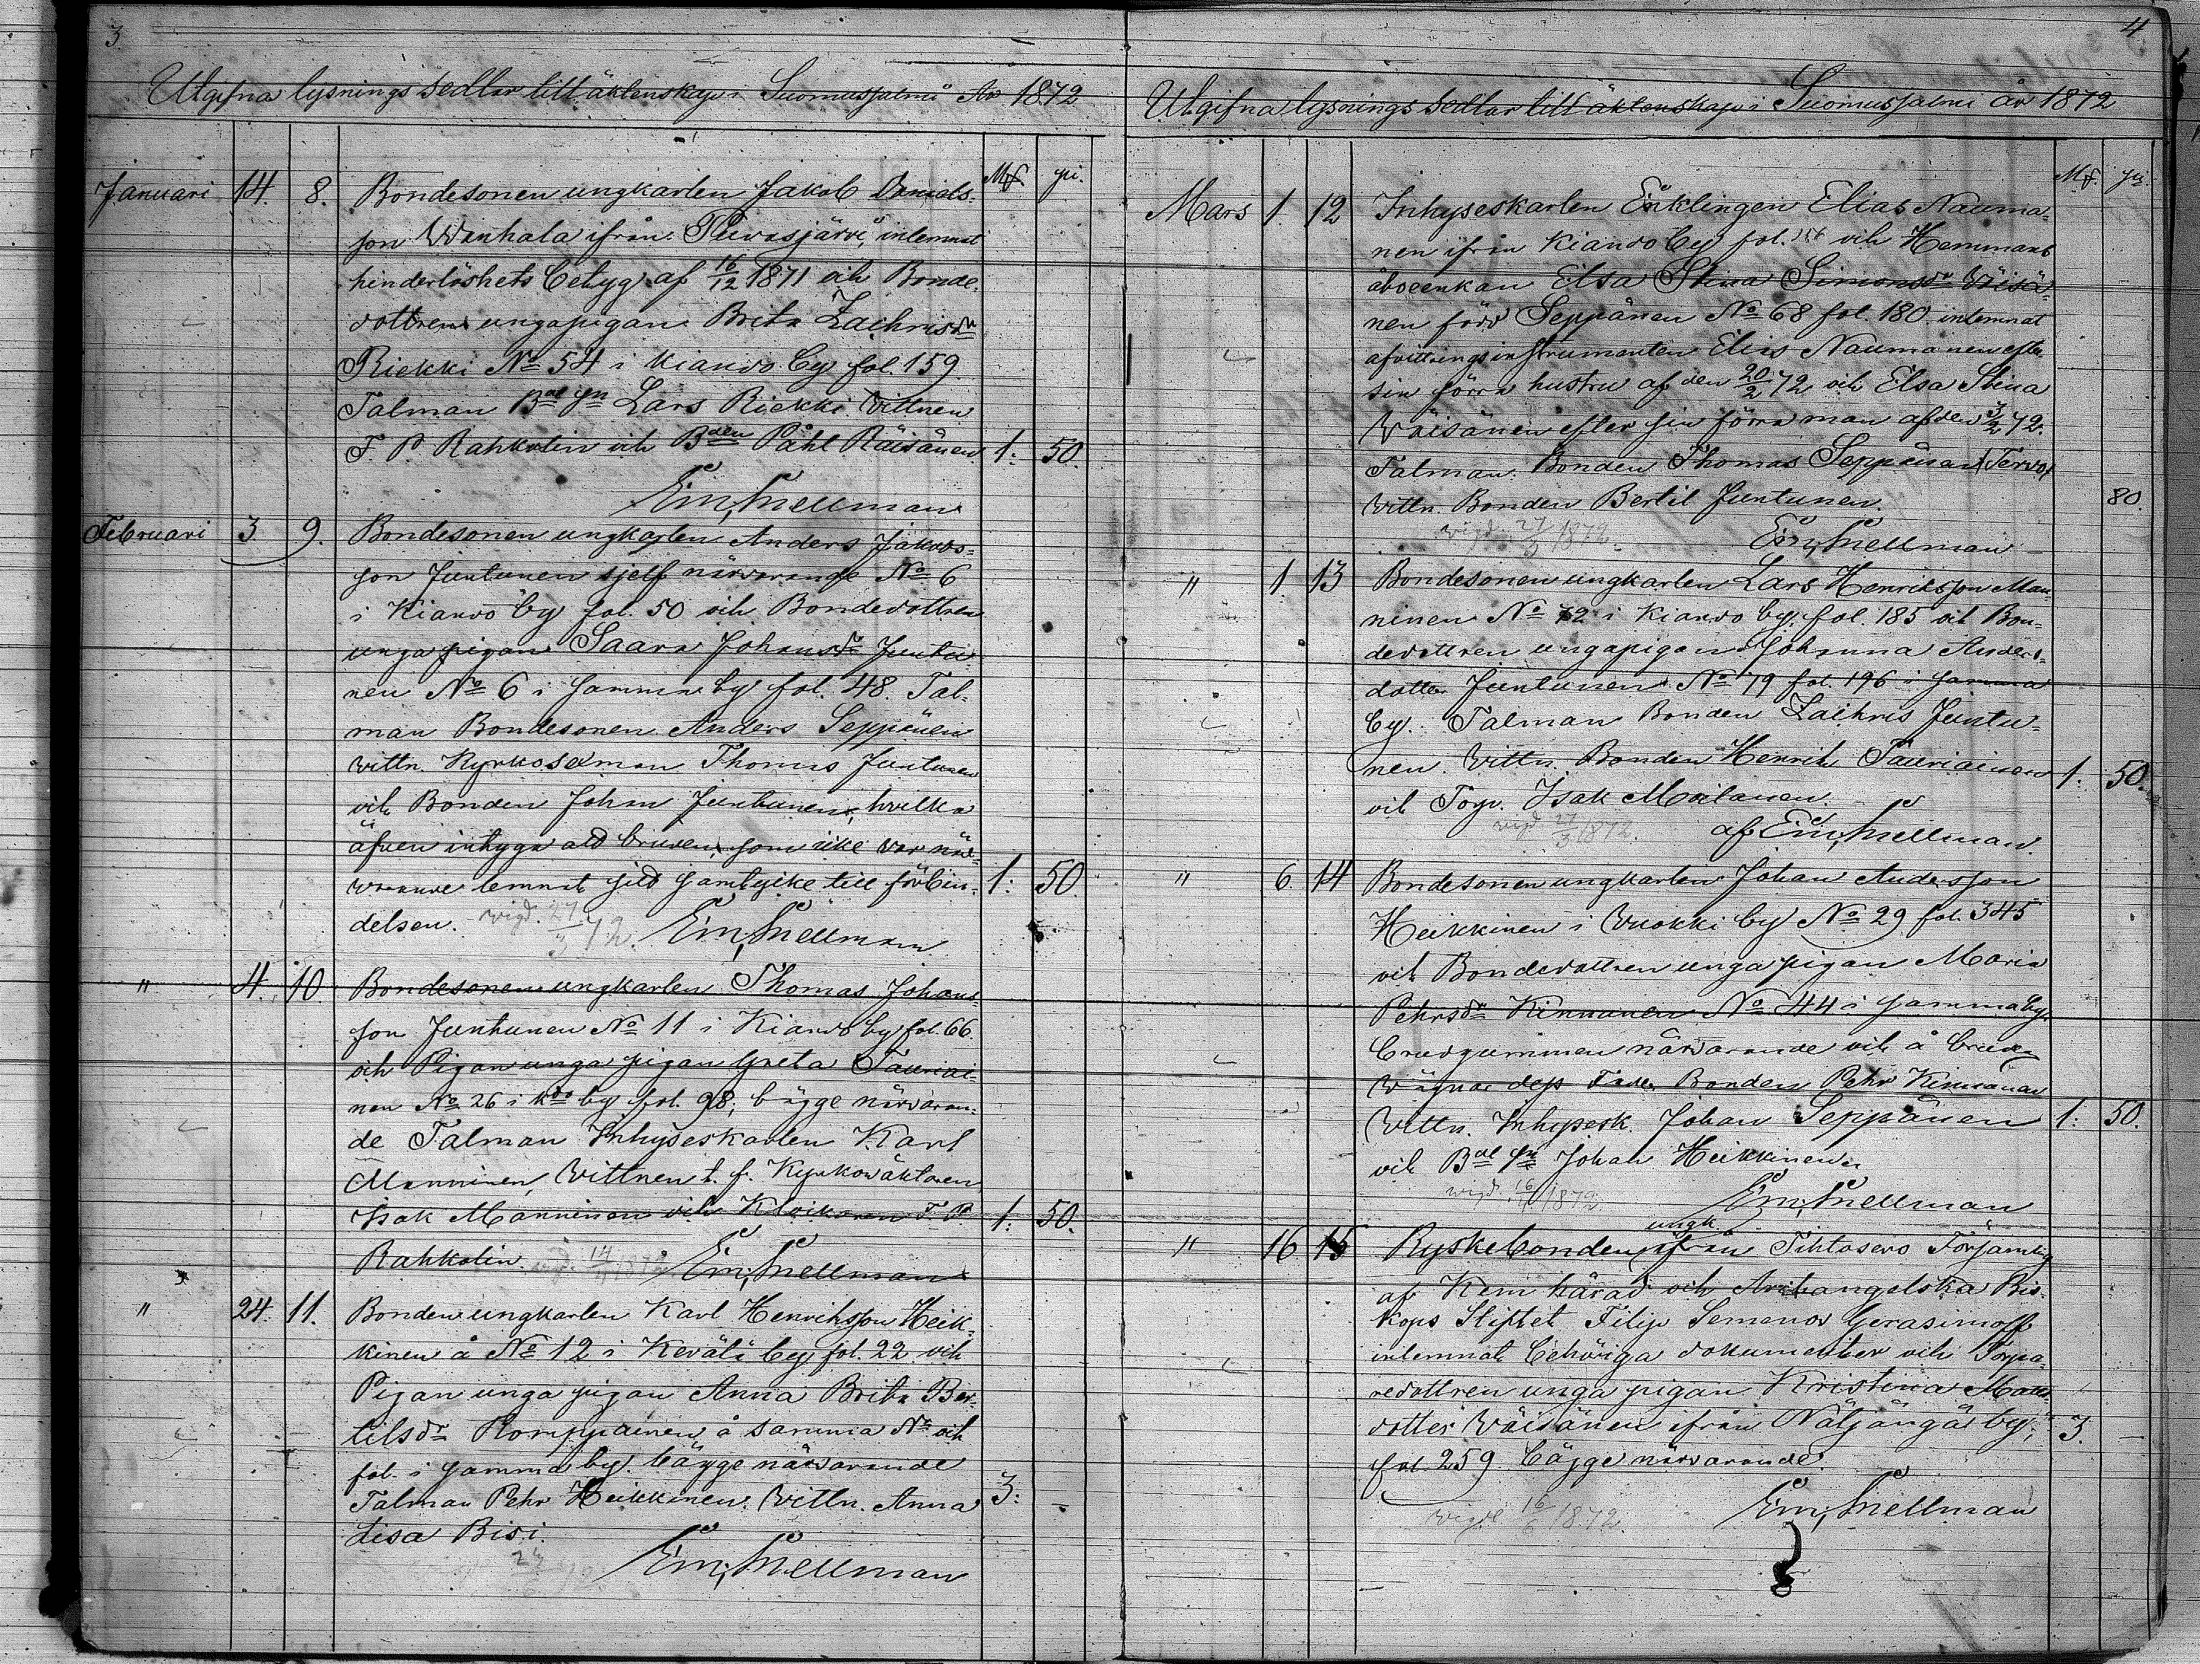 3
Utgifna lysnings sedlar till äktenskap i Suomusjalmi År 1872
Mf. pi.
Januari 14. 8. Bondesonen ungkarlen Jakob Daniels-
son Wanhala ifrån Puvasjärvi, inlemnat
hinderlöshets betyg af 16/12 1871 och Bonde-
dottren unga pigan Brita Zachrisdr
Riekki No 54 i Kiando by fol. 159
Talman Bde sn Lars Riekki Vittnen
F. P. Rahkolin och Bden Påhl Räisänen 1: 50.
Em. Snellman
Februari 3 9. Bondesonen ungkarlen Anders Jakobs-
son Juntunen sjelf närvarande No 6
i Kiando by fol. 50 och Bondedottren
unga pigan Saara Johansdr Juntu-
nen No 6 i samma by fol. 48. Tal-
man Bondesonen Anders Seppänen
vittn. Kyrkosexman Thomas Juntunen
och Bonden Johan Juntunen, hvilka
äfven intyga att bruden, som icke var när-
varande lemnat sitt samtycke till förbin- 1: 50
delsen. vigd. 27/3 72. Em. Snellman
" 4. 10 Bondesonen ungkarlen Thomas Johans-
son Juntunen No 11 i Kiando by fol. 66.
och Pigan unga pigan Greta Tauriai-
nen No 26 i kdo by fol. 98; bägge närvaran-
de Talman Inhyseskarlen Karl
Manninen, Vittnen t. f. Kyrkoväktaren
Isak Manninen och Klockaren F. P. 1: 50.
Rahkolin. Em. Snellman
" 24. 11. Bonden ungkarlen Karl Henriksson Heik-
kinen å No 12 i Keväli by fol. 22 och
Pigan unga pigan Anna Brita Ber-
tilsdr Romppainen å samma No och
fol. i samma by. bägge närvarande
Talman Pehr Heikkinen. Vittn. Anna 3:
Lisa Bisi.
Em. Snellman
4
Utgifna lysnings sedlar till äktenskap i Suomusjalmi år 1872
Mf. pi.
Mars 1. 12 Inhyseskarlen Enklingen Elias Nauma-
nen ifrån Kiando by fol. 156 och Hemmans
åboenkan Elsa Stina Simonsdr Väisä-
nen född Seppänen No 68 fol. 180. inlemnat
afvittringsinstrumenten Elias Naumanen efter
sin förra hustru af den 20/2 72 och Elsa Stina
Väisänen efter sin förra man af den 3/2 72.
Talman Bonden Thomas Seppänen (Tervo)
Vittn. Bonden Bertil Juntunen. 80.
vigd. 27/3 1872. Em. Snellman
" 1. 13 Bondesonen ungkarlen Lars Henriksson Man-
ninen No 72 i Kiando by, fol. 185 och Bon-
dedottren unga pigan Johanna Anders-
dotter Juntunen No 79 fol. 196 i samma
by. Talman Bonden Zachris Juntu-
nen. Vittn. Bonden Henrik Tauriainen 1: 50.
och Torp. Isak Moilanen.
vigd 27/3 1872. af Em. Snellman
" 6. 14 Bondesonen ungkarlen Johan Andersson
Heikkinen i Vuokki by No 29 fol. 345
och Bondedottren unga pigan Maria
Pehrsdr Kinnunen No 44 i samma by.
brudgummen närvarande och å brudens
vägnar dess Fader Bonden Pehr Kinnunen
Vittn. Inhysesk. Johan Seppänen 1: 50.
och Bde sn Johan Heikkinen
vigd. 16/ 1872. Em. Snellman
ungk.
" 16 15 Ryske bonden ifrån Tihtosero Församling
af Kem härad och Archangelska Bis-
kops Stiftet Filip Semenof Gerasimoff
inlemnat behöriga dokumenter och Torpa-
redottren unga pigan Kristina Mats-
dotter Väisänen ifrån Näljängä by, 3.
fol. 259. bägge närvarande.
vigde 16/6 1872. Em. Snellman